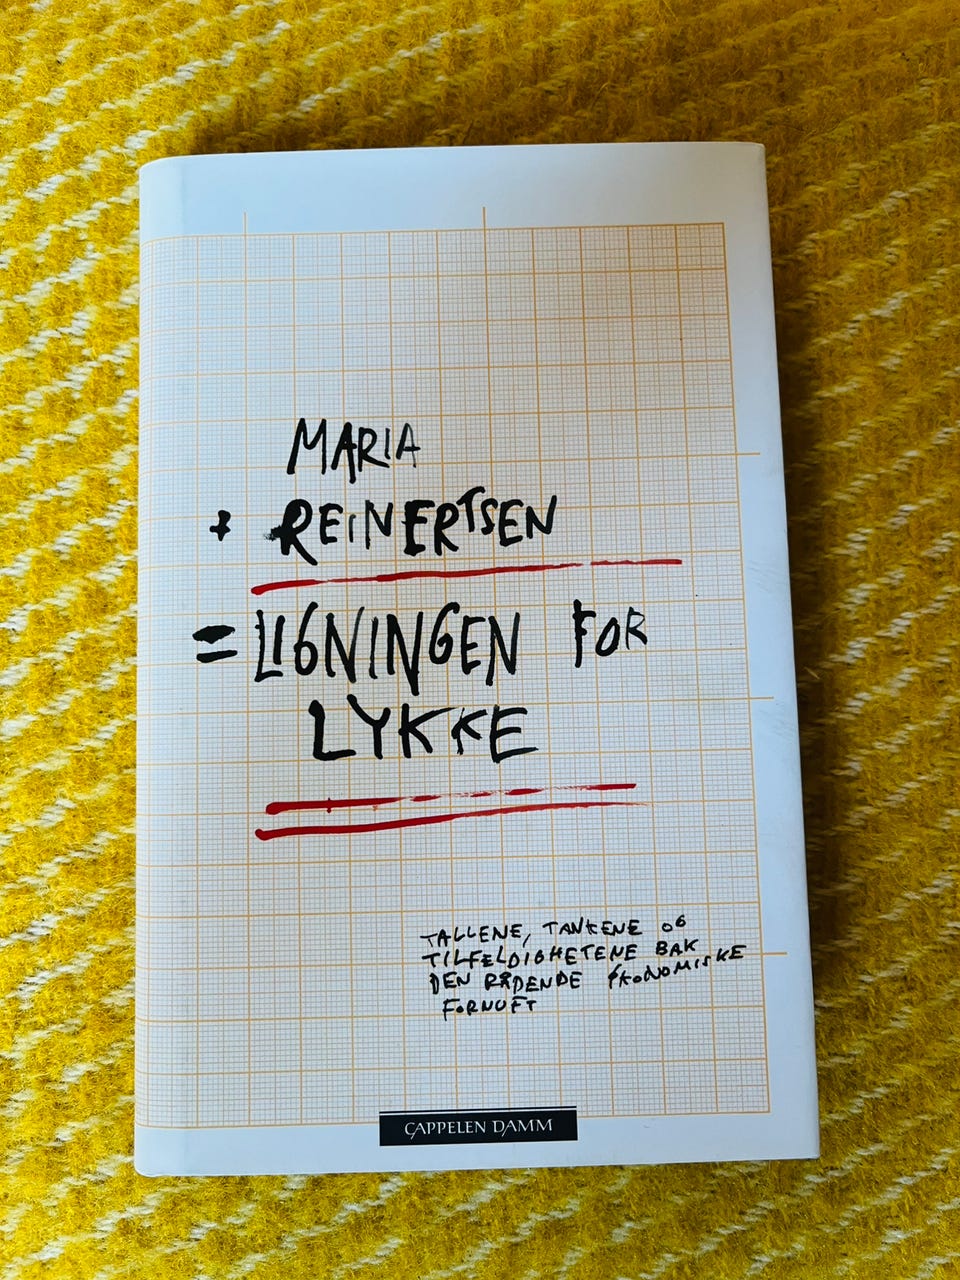 MARIA
+ REINERTSEN
= LIGNINGEN FOR
LYKKE
TALLENE, TANKENE OG
TILFELDIGHETENE BAK
DEN RÅDENDE ØKONOMISKE
FORNUFT
CAPPELEN DAMM